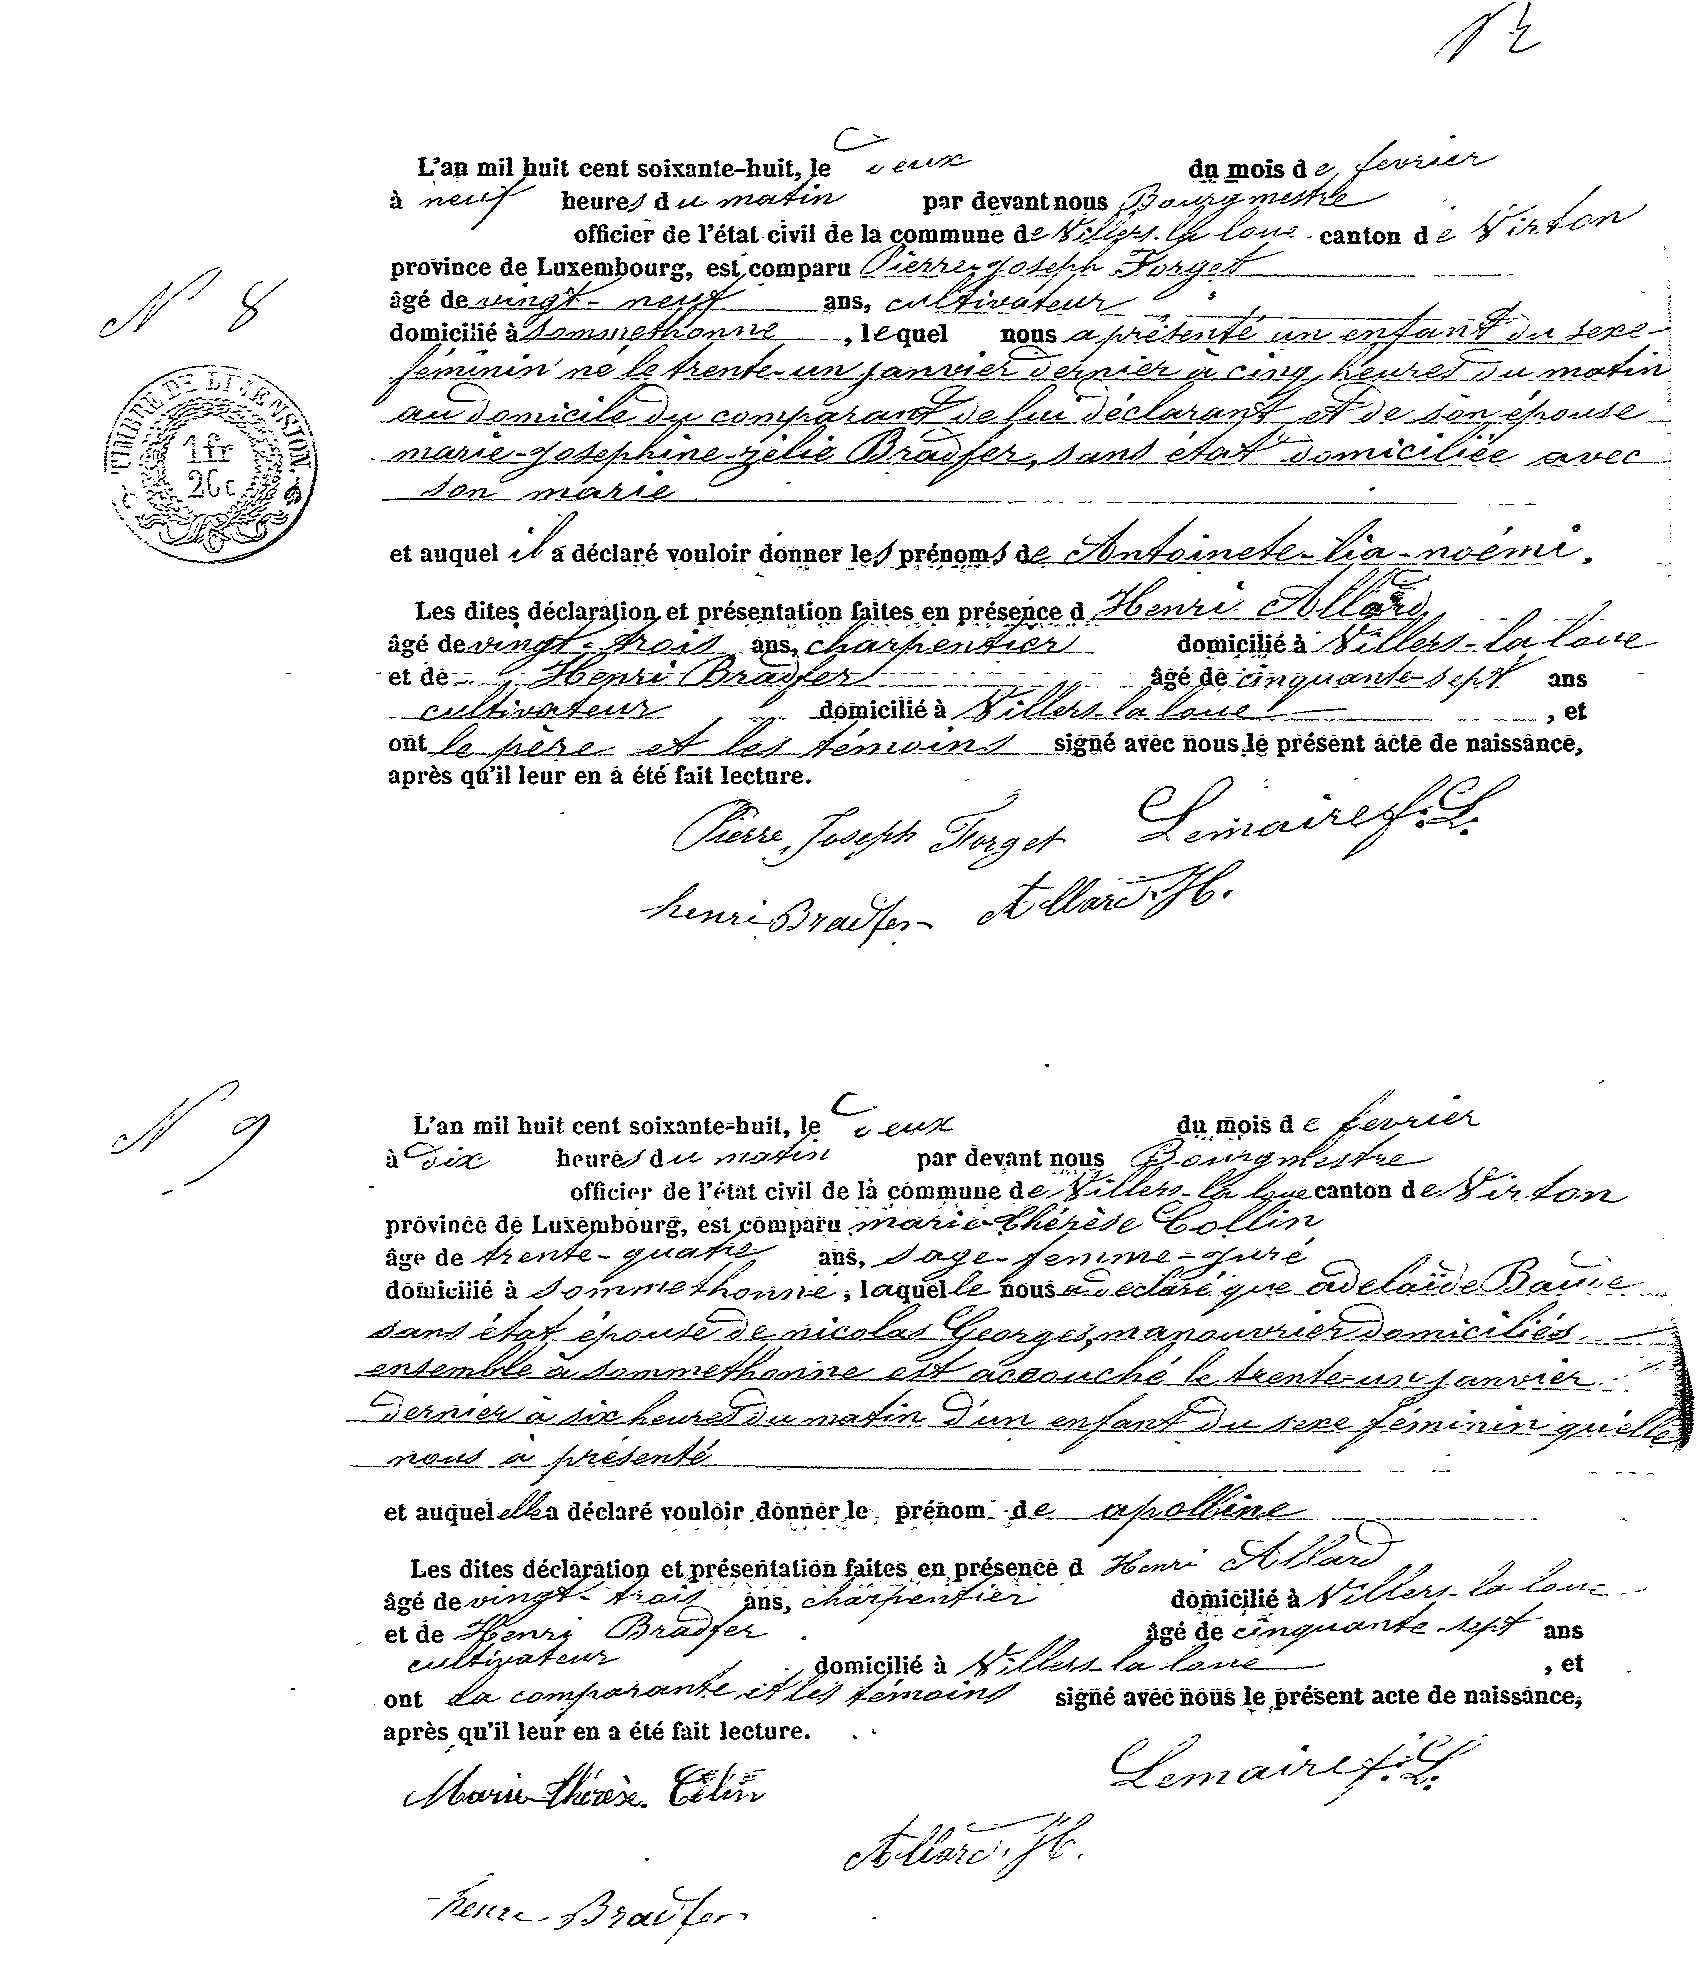 N° 8
TIMBRE DE DIMENSION.
1 fr
20 c
L'an mil huit cent soixante-huit, le deux du mois de fevrier
à neuf heures du matin par devant nous Bourgmestre
officier de l'état civil de la commune de Villers-la loue canton de Virton
province de Luxembourg, est comparu Pierre-Joseph Forget
âgé de vingt-neuf ans, cultivateur
domicilié à Sommethonne, lequel nous a présenté un enfant du sexe
féminin né le trente-un janvier dernier à cinq heures du matin
au domicile du comparant de lui déclarant et de son épouse
marie-josephine-zélie Bradfer, sans état domiciliée avec
son marie
et auquel il a déclaré vouloir donner les prénoms de Antoinete-lia-noémi.
Les dites déclaration et présentation faites en présence d Henri Allard
âgé de vingt-trois ans, charpentier domicilié à Villers-la loue
et de Henri Bradfer âgé de cinquante-sept ans
cultivateur domicilié à Villers-la loue, et
ont le père et les témoins signé avec nous le présent acte de naissance,
après qu'il leur en a été fait lecture.
Pierre, Joseph Forget Lemaire f. L.
henri Bradfer Allard. H.
N° 9
L'an mil huit cent soixante-huit, le deux du mois de fevrier
à dix heures du matin par devant nous Bourgmestre
officier de l'état civil de la commune de Villers-la loue canton de Virton
province de Luxembourg, est comparu marie-thérèse Collin
âge de trente-quatre ans, sage-femme-juré
domicilié à Sommethonne, laquelle nous a declaré que adelaïde
sans état épouse de nicolas Georges, manouvrier domiciliés
ensemble à sommethonne est accouché le trente-un janvier
dernier à six heures du matin d'un enfant du sexe féminin qu'elle
nous à présenté
et auquel elle a déclaré vouloir donner le prénom de apolline
Les dites déclaration et présentation faites en présence d Henri Allard
âgé de vingt-trois ans, charpentier domicilié à Villers-la loue
et de Henri Bradfer âgé de cinquante-sept ans
cultivateur domicilié à Villers-la loue, et
ont la comparante et les témoins signé avec nous le présent acte de naissance,
après qu'il leur en a été fait lecture.
Marie-thérèse. Colin Lemaire f. L.
Allard. H.
henri Bradfer